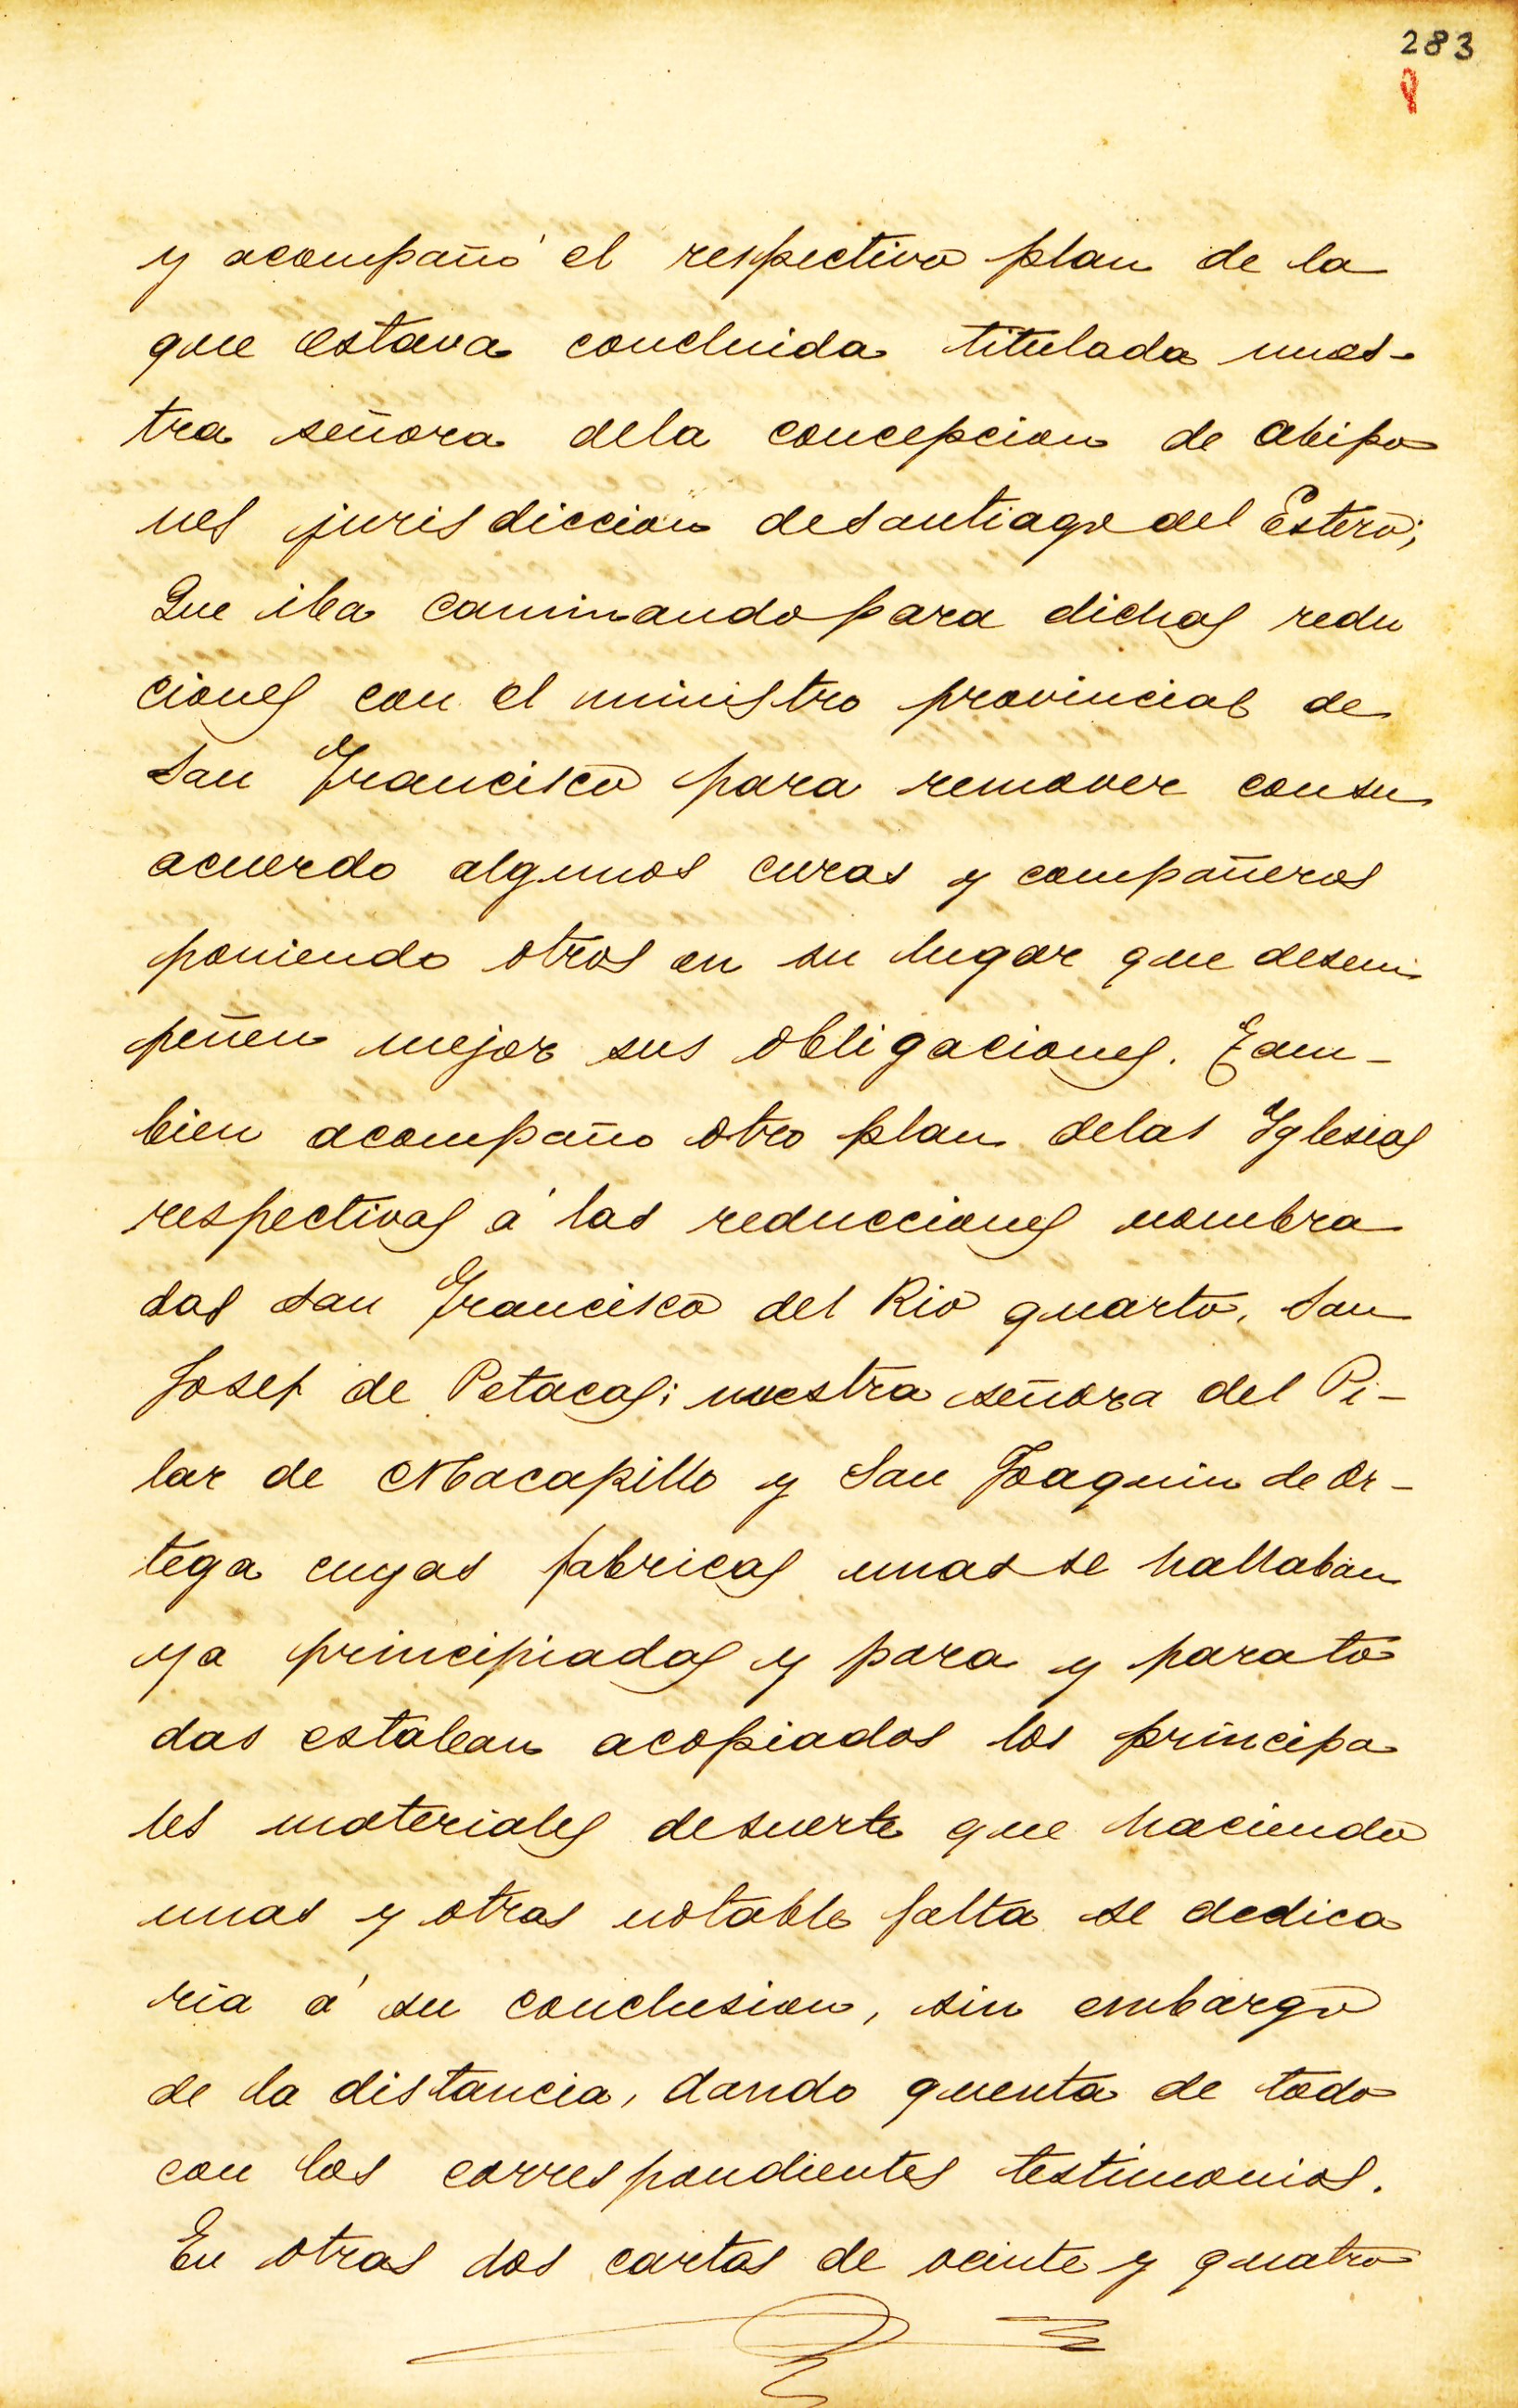 283
y acompañó el respectivo plan de la
que estava concluida titulada nues-
tra señora dela concepcion de abipo
nes jurisdiccion desantiago del Estero;
Que iba caminando para dichas redu
ciones con el ministro provincial de
San Francisco para remover consu
acuerdo algunos curas y compañeros
poniendo otros en su lugar que desem
peñen mejor sus obligaciones. Tam-
bien acompaño otro plan delas Yglesias
respectivas á las reducciones nombra
das San Francisco del Rio quarto, San
Josef de Petacas; nuestra señora del Pi-
lar de Macapillo y San Joaquin de Or-
tega cuyas fabricas unas se hallaban
ya principiadas y para y parato
das estaban acopiados los principa
les materiales desuerte que haciendo
unas y otras notable falta se dedica
ria á su conclusion, sin embargo
de la distancia, dando quenta de todo
con los correspondientes testimonios.
En otras dos cartas de veinte y quatro